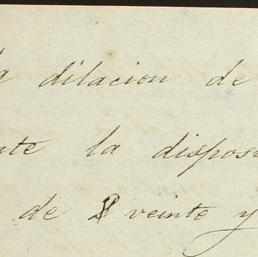 a dilacion de
nte la dispos
de veinte y